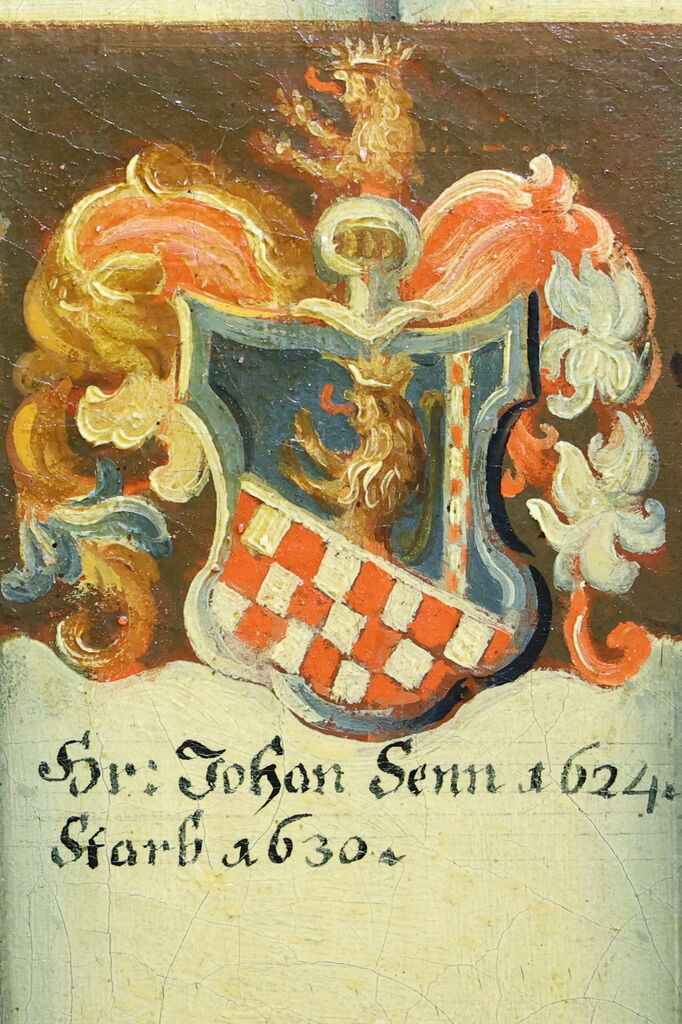 Hr: Johan Senn 1624.
Starb 1630.